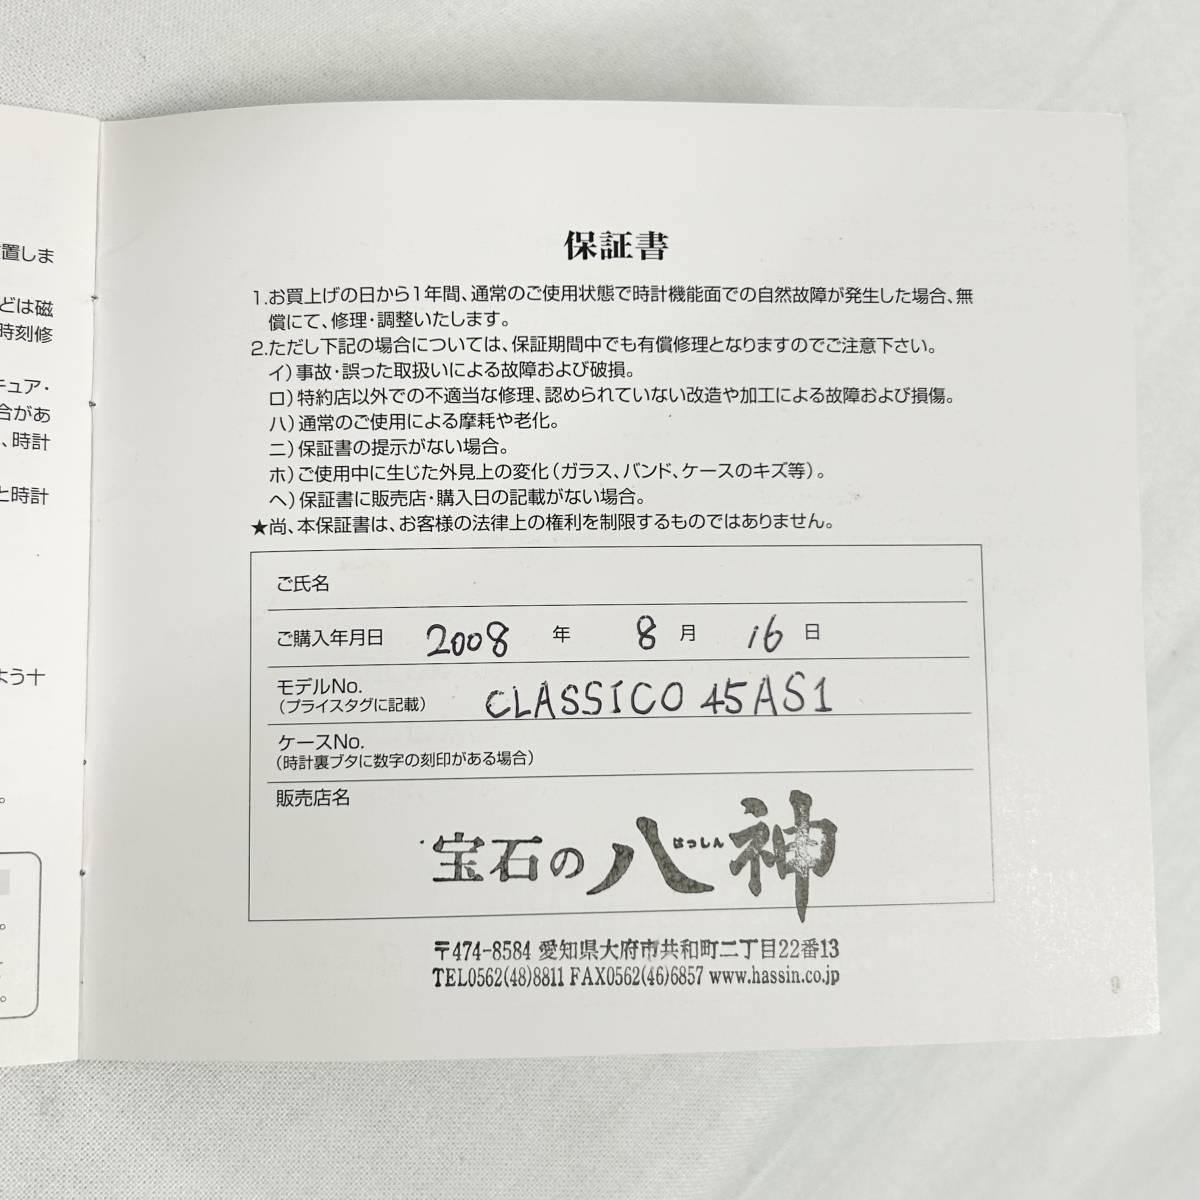 置しま
どは磁
時刻修
チュア・
合があ
、時計
と時計
よう十
。
。
。
保証書
1.お買上げの日から1年間、通常のご使用状態で時計機能面での自然故障が発生した場合、無
償にて、修理・調整いたします。
2.ただし下記の場合については、保証期間中でも有償修理となりますのでご注意下さい。
イ)事故・誤った取扱いによる故障および破損。
ロ)特約店以外での不適当な修理、認められていない改造や加工による故障および損傷。
ハ)通常のご使用による摩耗や老化。
ニ)保証書の提示がない場合。
ホ)ご使用中に生じた外見上の変化(ガラス、バンド、ケースのキズ等)。
ヘ)保証書に販売店・購入日の記載がない場合。
★尚、本保証書は、お客様の法律上の権利を制限するものではありません。
ご氏名
ご購入年月日 2008 年 8 月 16 日
モデルNo. CLASSICO 45AS1
(プライスタグに記載)
ケースNo.
(時計裏ブタに数字の刻印がある場合)
販売店名
宝石の八神
はっしん
〒474-8584 愛知県大府市共和町二丁目22番13
TEL0562(48)8811 FAX0562(46)6857 www.hassin.co.jp
9